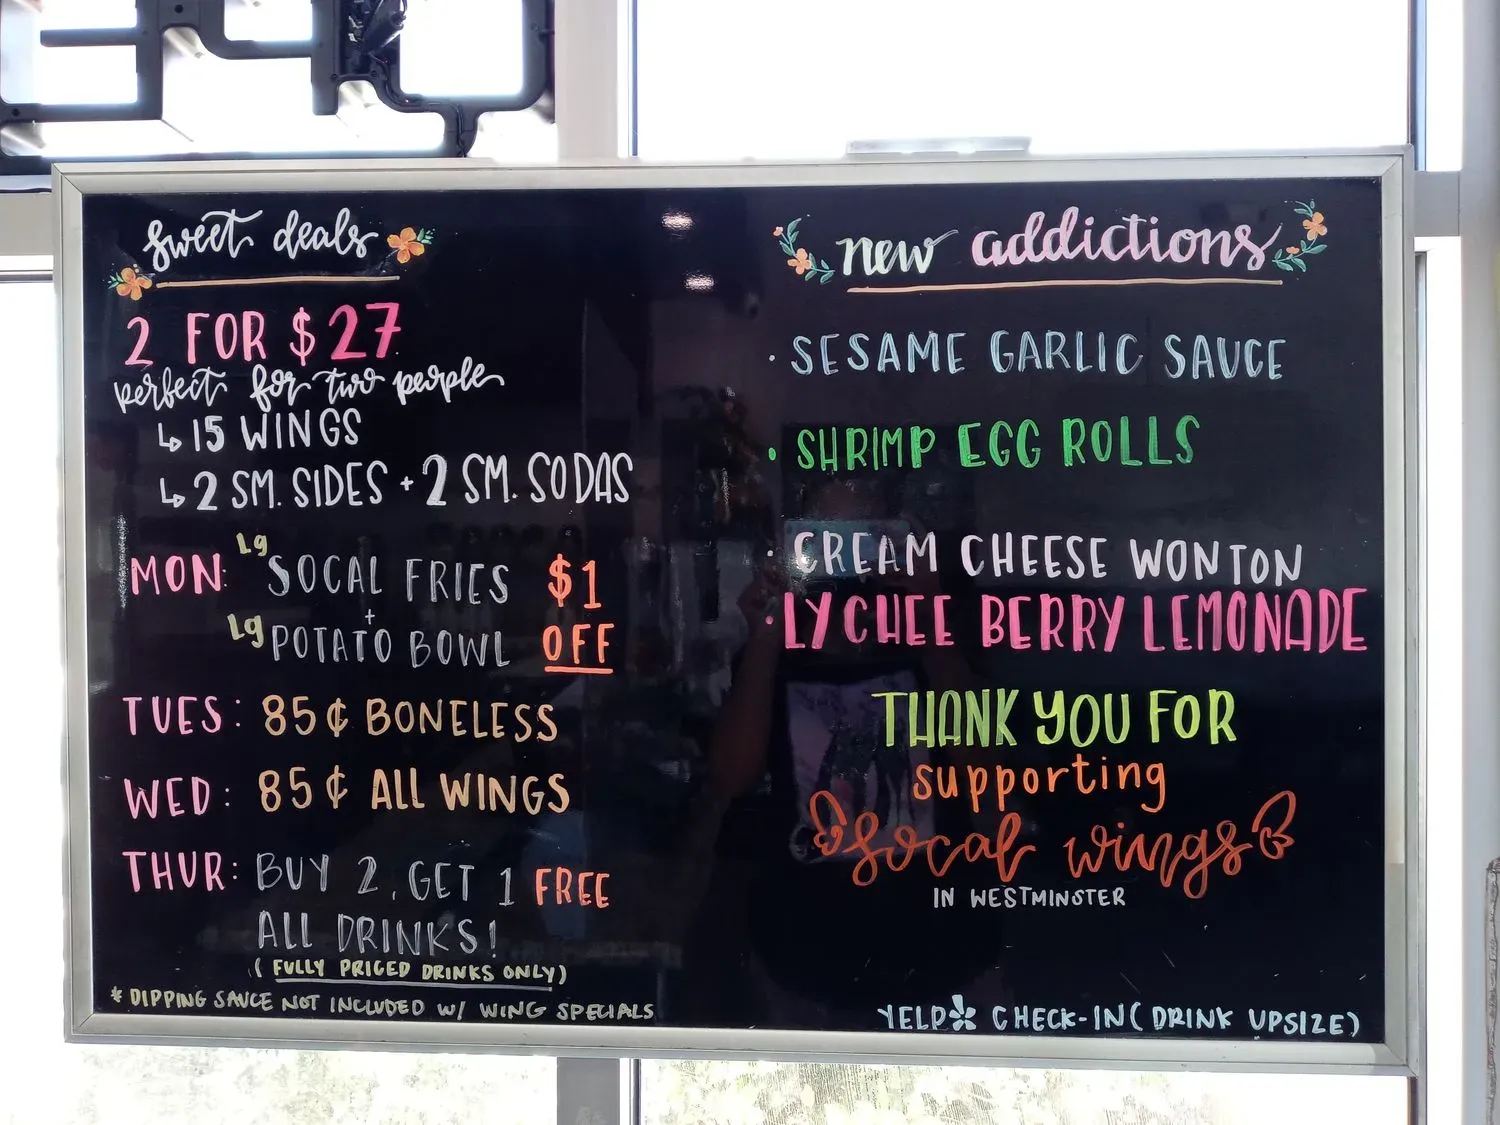 sweet deals
2 FOR $27
perfect for two people
↳ 15 WINGS
↳ 2 SM. SIDES + 2 SM. SODAS
MON: Lg SOCAL FRIES $1
+
Lg POTATO BOWL OFF
TUES: 85¢ BONELESS
WED: 85¢ ALL WINGS
THUR: BUY 2, GET 1 FREE
ALL DRINKS!
(FULLY PRICED DRINKS ONLY)
* DIPPING SAUCE NOT INCLUDED W/ WING SPECIALS
new addictions
· SESAME GARLIC SAUCE
· SHRIMP EGG ROLLS
· CREAM CHEESE WONTON
· LYCHEE BERRY LEMONADE
THANK YOU FOR
supporting
socal wings
IN WESTMINSTER
YELP CHECK-IN (DRINK UPSIZE)